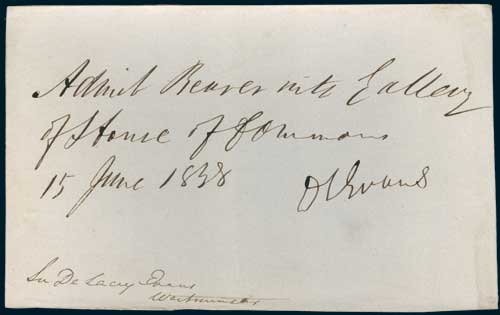 Admit Bearer into Gallery
of House of Commons
15 June 1838
DL Evans
Sir De Lacy Evans
Westminster